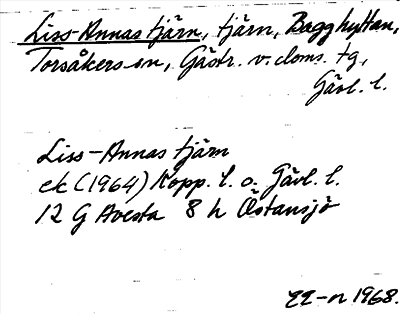 Liss-Annas tjärn, tjärn, Bagghyttan,
Torsåkers sn, Gästr. v. doms. tg,
Gävl. l.
Liss-Annas tjärn
ek (1964) Kopp. l. o. Gävl. l.
12 G Avesta 8 h Östansjö
ZZ-n 1968.